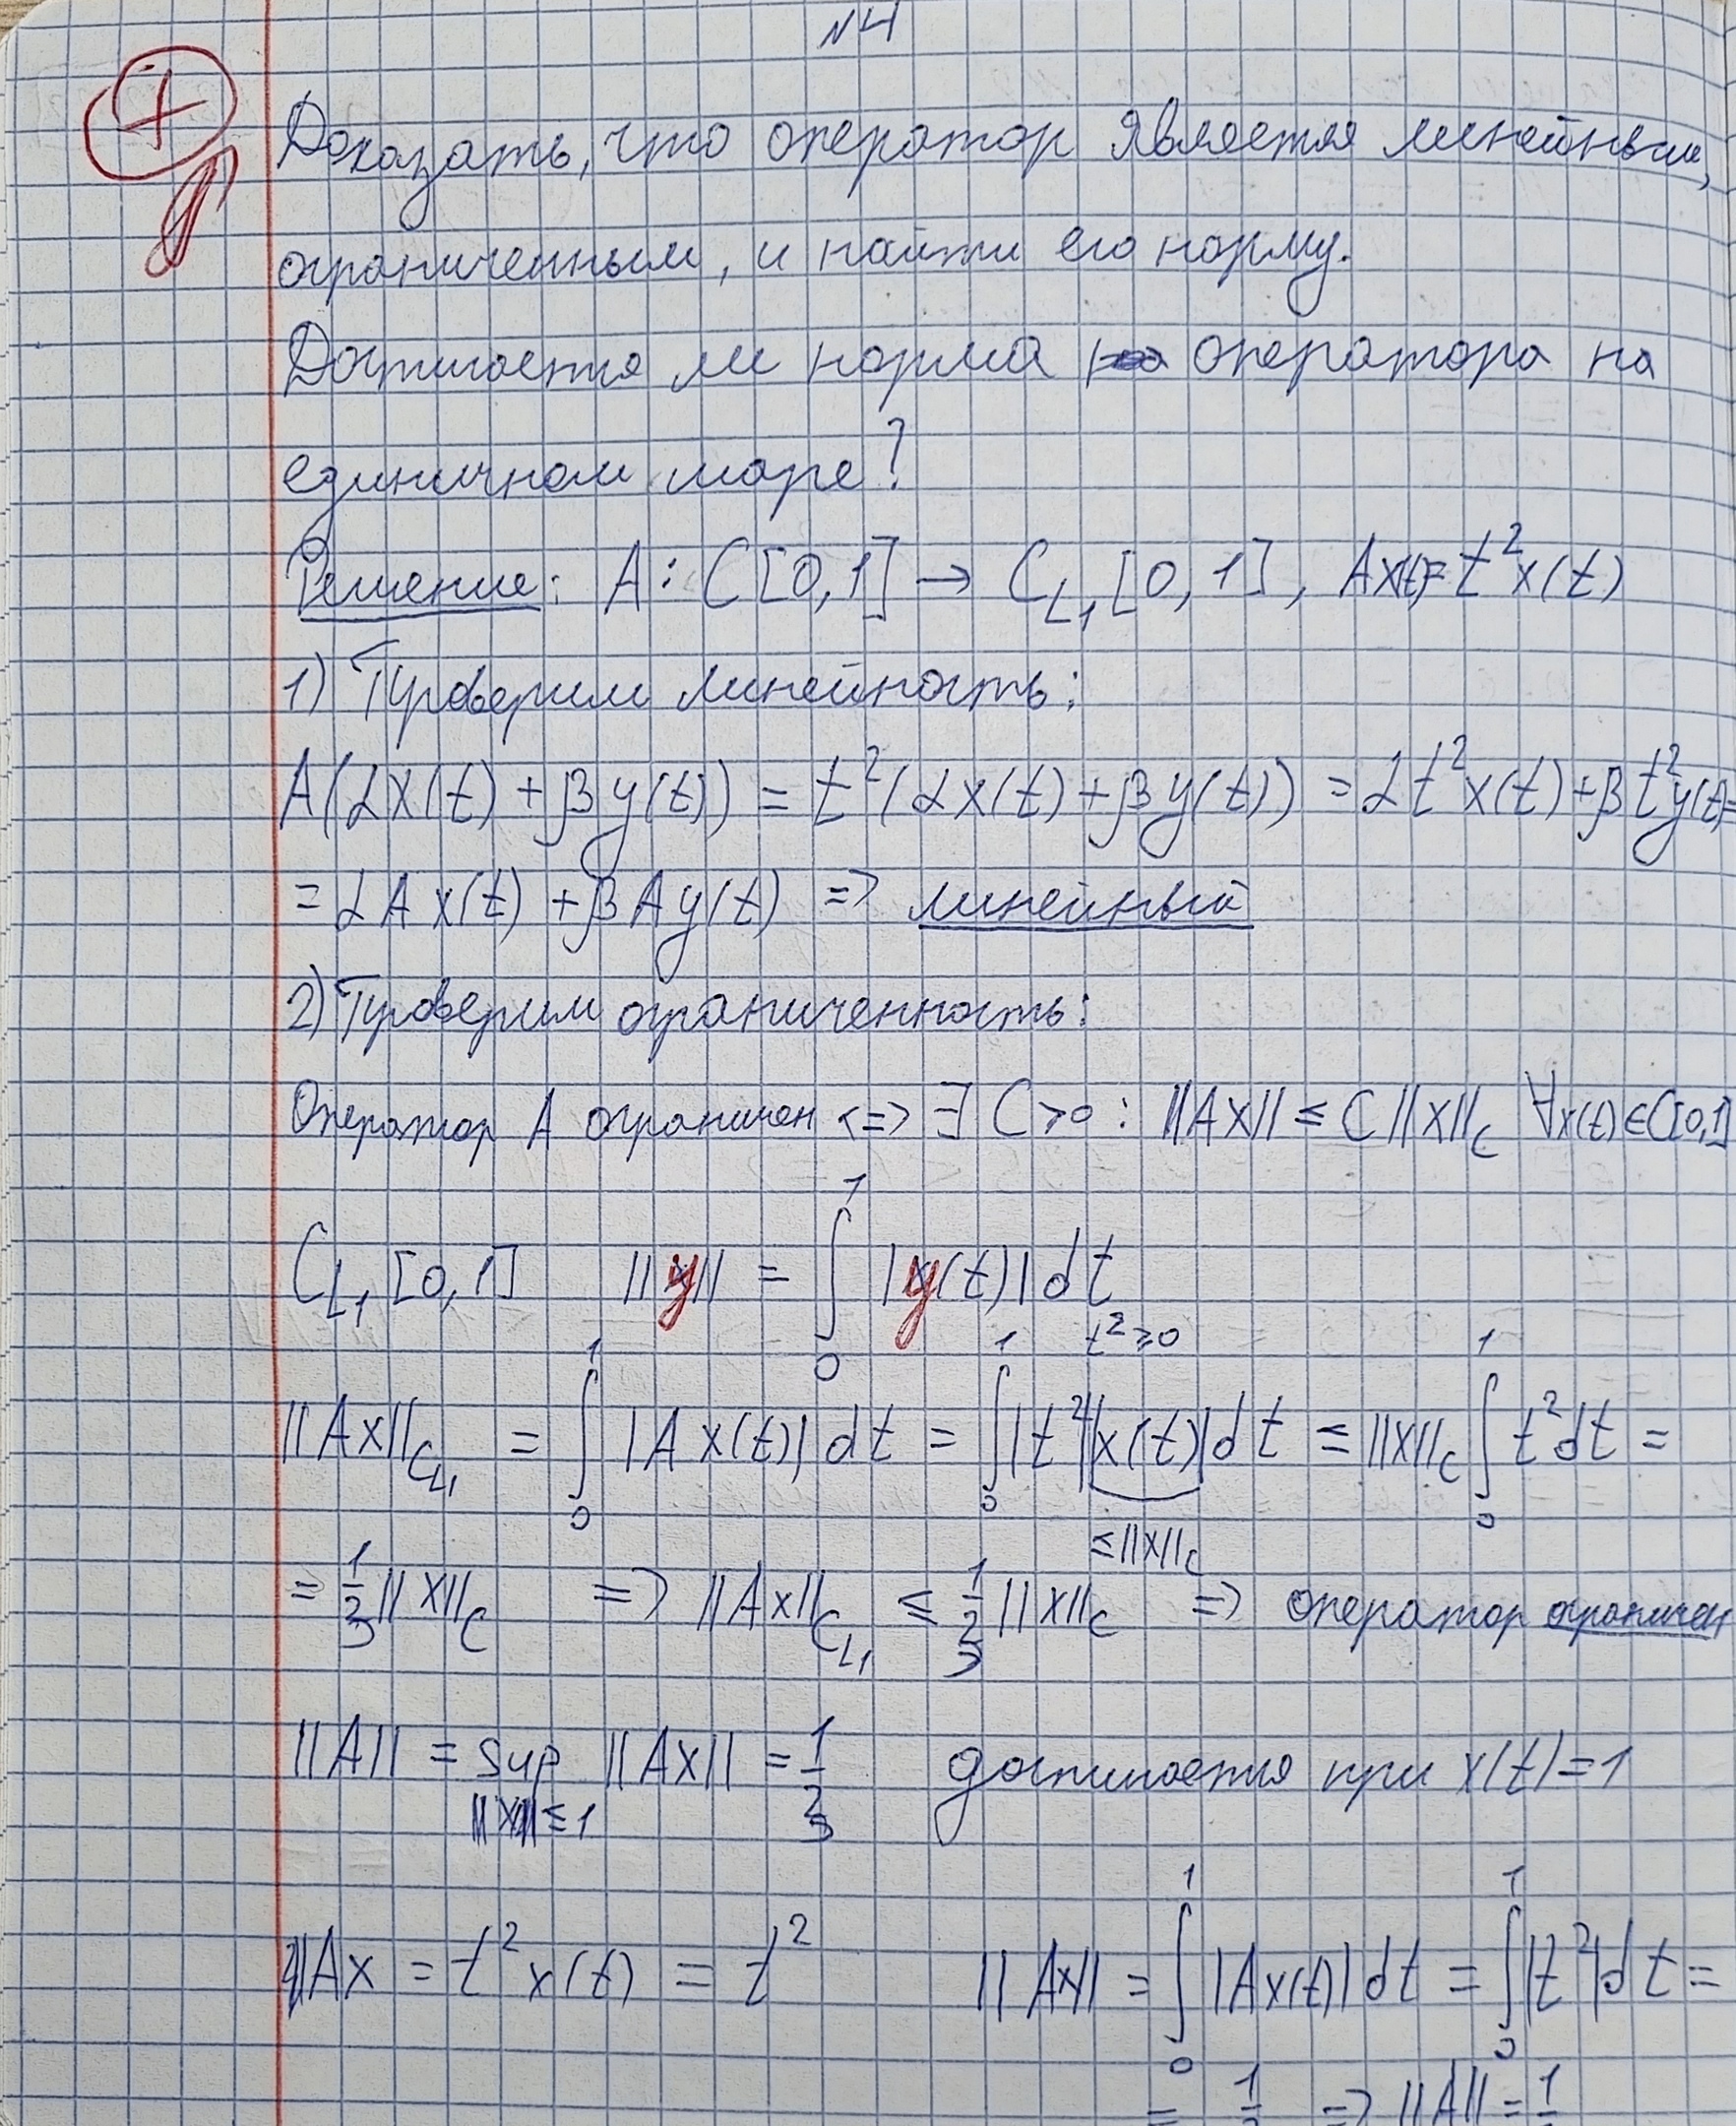 №4
+
Доказать, что оператор является линейным,
ограниченным, и найти его норму.
Достигается ли норма оператора на
единичном шаре?
Решение: A: C[0,1] → C_{L_1}[0,1], Ax(t)= t²x(t)
1) Проверим линейность:
A(αx(t) + βy(t)) = t²(αx(t) + βy(t)) = αt²x(t) + βt²y(t)=
= αAx(t) + βAy(t) => линейный
2) Проверим ограниченность:
Оператор A ограничен <=> ∃ C>0: ||Ax|| ≤ C||x||_C ∀x(t)∈C[0,1]
C_{L_1}[0,1] ||y|| = ∫_0^1 |y(t)|dt
t² ≥ 0
||Ax||_{C_{L_1}} = ∫_0^1 |Ax(t)|dt = ∫_0^1 |t²||x(t)|dt ≤ ||x||_C ∫_0^1 t²dt =
≤||x||_C
= 1/3 ||x||_C => ||Ax||_{C_{L_1}} ≤ 1/3 ||x||_C => оператор ограничен
||A|| = sup_{||x||≤1} ||Ax|| = 1/3 достигается при x(t)=1
Ax = t²x(t) = t² ||Ax|| = ∫_0^1 |Ax(t)|dt = ∫_0^1 |t²|dt =
= 1/3 => ||A|| = 1/3